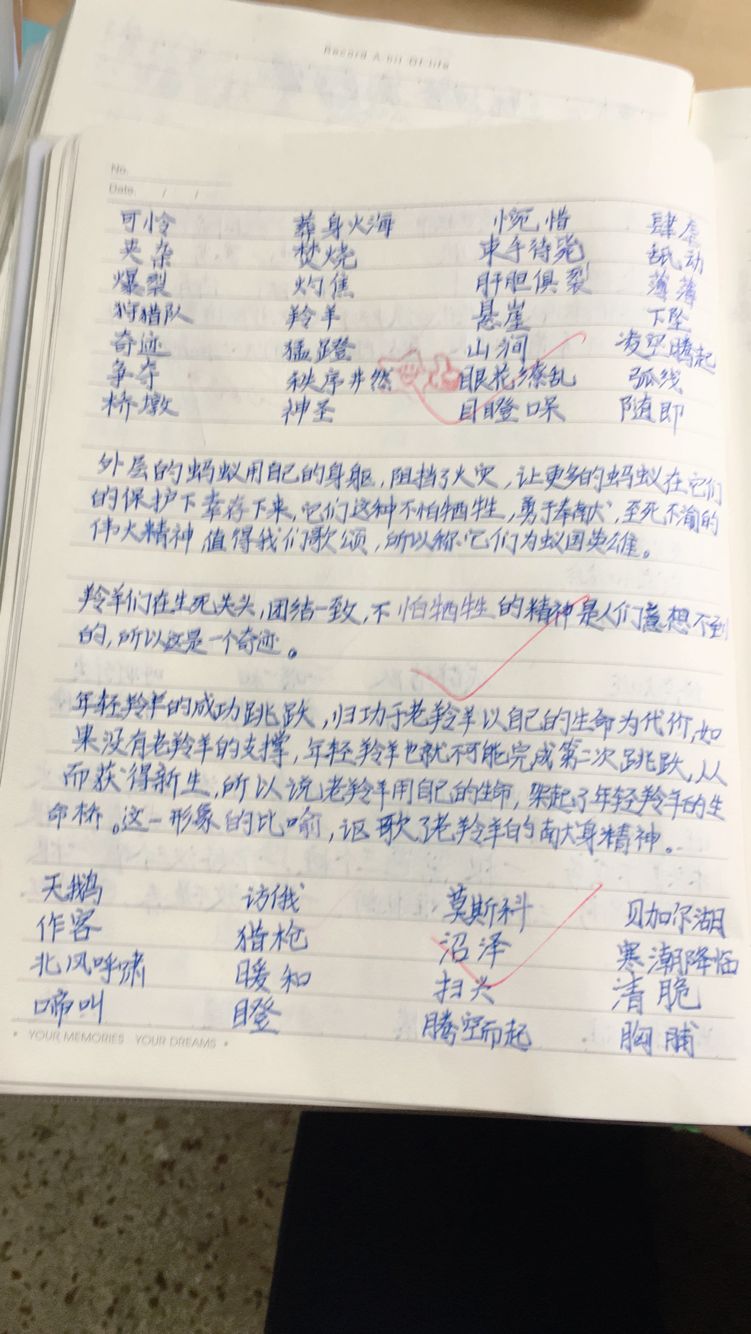 Record A bit Of life
No.
Date. / /
可怜 葬身火海 惋惜 肆虐
夹杂 焚烧 束手待毙 舐动
爆裂 灼焦 肝胆俱裂 薄薄
狩猎队 羚羊 悬崖 下坠
奇迹 猛蹬 山涧 凌空腾起
争夺 秩序井然 眼花缭乱 弧线
桥墩 神圣 目瞪口呆 随即
外层的蚂蚁用自己的身躯,阻挡了火灾,让更多的蚂蚁在它们
的保护下幸存下来,它们这种不怕牺牲,勇于奉献,至死不渝的
伟大精神值得我们歌颂,所以称它们为蚁国英雄。
羚羊们在生死关头,团结一致,不怕牺牲的精神是人们意想不到
的,所以这是一个奇迹。
年轻羚羊的成功跳跃,归功于老羚羊以自己的生命为代价,如
果没有老羚羊的支撑,年轻羚羊也就不可能完成第二次跳跃,从
而获得新生,所以说老羚羊用自己的生命,架起了年轻羚羊的生
命桥。这一形象的比喻,讴歌了老羚羊的献身精神。
天鹅 访俄 莫斯科 贝加尔湖
作客 猎枪 沼泽 寒潮降临
北风呼啸 暖和 扫头 清脆
啼叫 瞪 腾空而起 胸脯
YOUR MEMORIES YOUR DREAMS